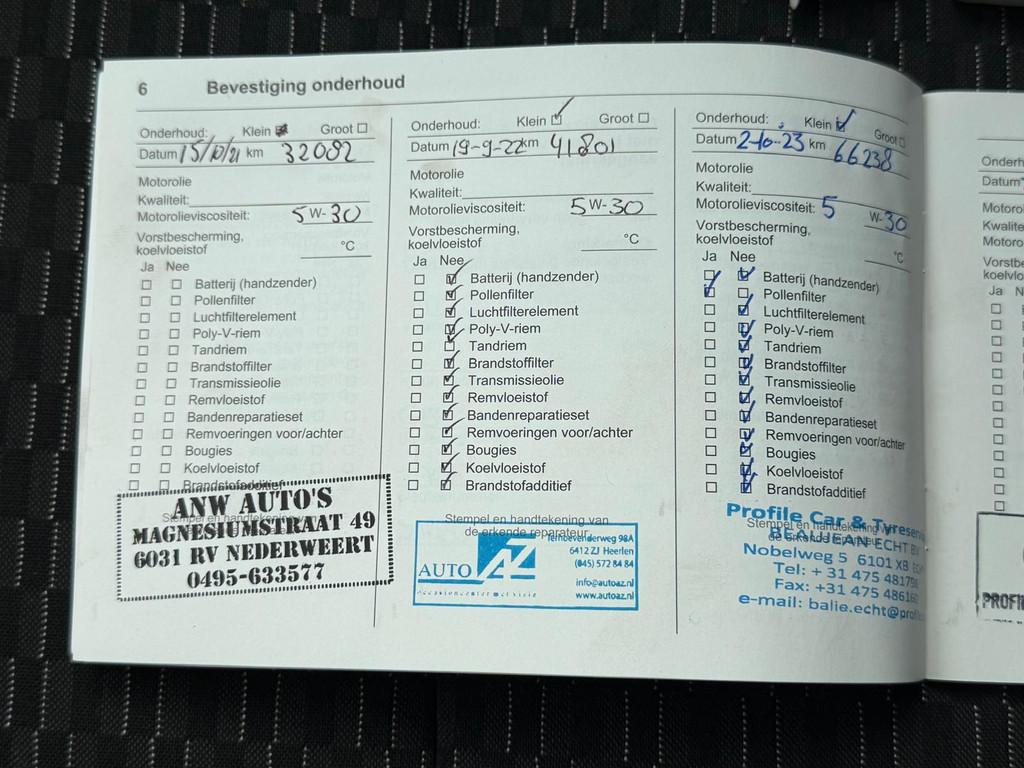 6 Bevestiging onderhoud
Onderhoud: Klein Groot
Datum 15/10/21 km 32082
Motorolie
Kwaliteit:
Motorolieviscositeit: 5 W-30
Vorstbescherming,
koelvloeistof °C
Ja Nee
Batterij (handzender)
Pollenfilter
Luchtfilterelement
Poly-V-riem
Tandriem
Brandstoffilter
Transmissieolie
Remvloeistof
Bandenreparatieset
Remvoeringen voor/achter
Bougies
Koelvloeistof
Brandstofadditief
ANW AUTO'S
MAGNESIUMSTRAAT 49
6031 RV NEDERWEERT
0495-633577
Onderhoud: Klein Groot
Datum 19-9-22 km 41801
Motorolie
Kwaliteit:
Motorolieviscositeit: 5 W-30
Vorstbescherming,
koelvloeistof °C
Ja Nee
Batterij (handzender)
Pollenfilter
Luchtfilterelement
Poly-V-riem
Tandriem
Brandstoffilter
Transmissieolie
Remvloeistof
Bandenreparatieset
Remvoeringen voor/achter
Bougies
Koelvloeistof
Brandstofadditief
Stempel en handtekening van
de erkende reparateur
AUTO AZ
Terhoevenderweg 98A
6412 ZJ Heerlen
(045) 572 84 84
info@autoaz.nl
www.autoaz.nl
Onderhoud: Klein Groot
Datum 2-10-23 km 66238
Motorolie
Kwaliteit:
Motorolieviscositeit: 5 W-30
Vorstbescherming,
koelvloeistof °C
Ja Nee
Batterij (handzender)
Pollenfilter
Luchtfilterelement
Poly-V-riem
Tandriem
Brandstoffilter
Transmissieolie
Remvloeistof
Bandenreparatieset
Remvoeringen voor/achter
Bougies
Koelvloeistof
Brandstofadditief
Stempel en handtekening
Profile Car & Tyreserv
BEAUJEAN ECHT BV
Nobelweg 5 6101 XB
Tel: + 31 475 4817
Fax: +31 475 4861
e-mail: balie.echt@profile
Onderh
Datum
Motoro
Kwalite
Motoro
Vorstbe
koelvlo
Ja N
PROFI